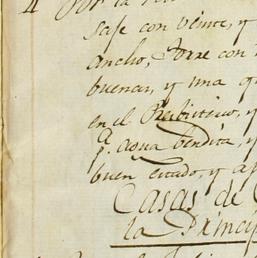 4 Por la
sase con veinte, y
ancho, Torre con
buenas, y una
en el Presbiterio, y
pª. agua bendita, y
buen estado, y
Casas de
la Princip